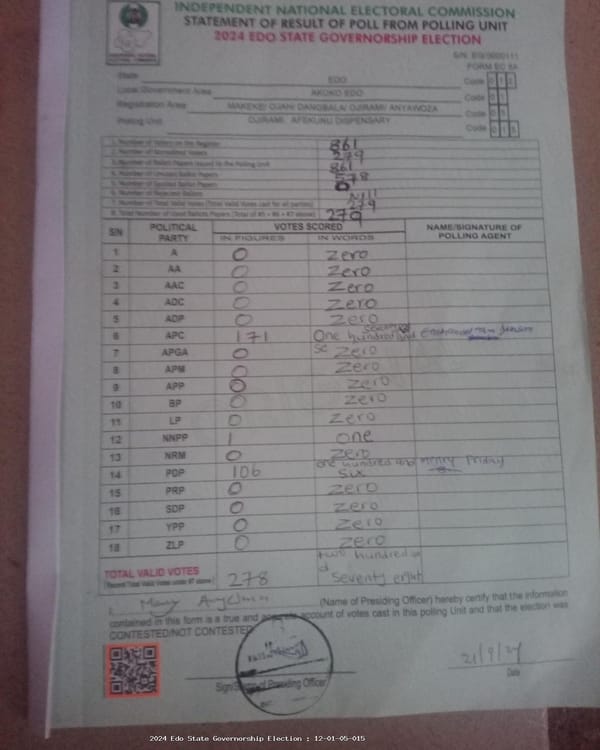 INDEPENDENT NATIONAL ELECTORAL COMMISSION
STATEMENT OF RESULT OF POLL FROM POLLING UNIT
2024 EDO STATE GOVERNORSHIP ELECTION
FORM EC 8A
State EDO Code
Local Government Area AKOKO EDO Code
Registration Area MAKEKE/ OJAH/ DANGBALA/ OJIRAMI/ ANYAWOZA Code
Polling Unit OJIRAMI, AFEKUNU DISPENSARY Code 015
1. Number of Voters on the Register 861
2. Number of Accredited Voters 279
3. Number of Ballot Papers Issued to the Polling Unit 861
4. Number of Unused Ballot Papers 578
5. Number of Spoiled Ballot Papers 0
6. Number of Rejected Ballots
7. Number of Total Valid Votes (Total Valid Votes cast for all parties) 279
8. Total Number of Used Ballot Papers (Total of #5 + #6 + #7 above) 279
S/N POLITICAL PARTY VOTES SCORED NAME/SIGNATURE OF POLLING AGENT
IN FIGURES IN WORDS
1 A 0 Zero
2 AA 0 Zero
3 AAC 0 Zero
4 ADC 0 Zero
5 ADP 0 Zero
6 APC 171 One hundred and
7 APGA 0 Zero
8 APM 0 Zero
9 APP 0 Zero
10 BP 0 Zero
11 LP 0 Zero
12 NNPP 1 One
13 NRM 0 Zero
14 PDP 106 one hundred and six Henry Friday
15 PRP 0 Zero
16 SDP 0 Zero
17 YPP 0 Zero
18 ZLP 0 Zero
TOTAL VALID VOTES 278 two hundred and Seventy eight
I, Mary (Name of Presiding Officer) hereby certify that the information
contained in this form is a true and account of votes cast in this polling Unit and that the election was
CONTESTED/NOT CONTESTED
Sign/ of Presiding Officer
21/9/24
Date
2024 Edo State Governorship Election : 12-01-05-015